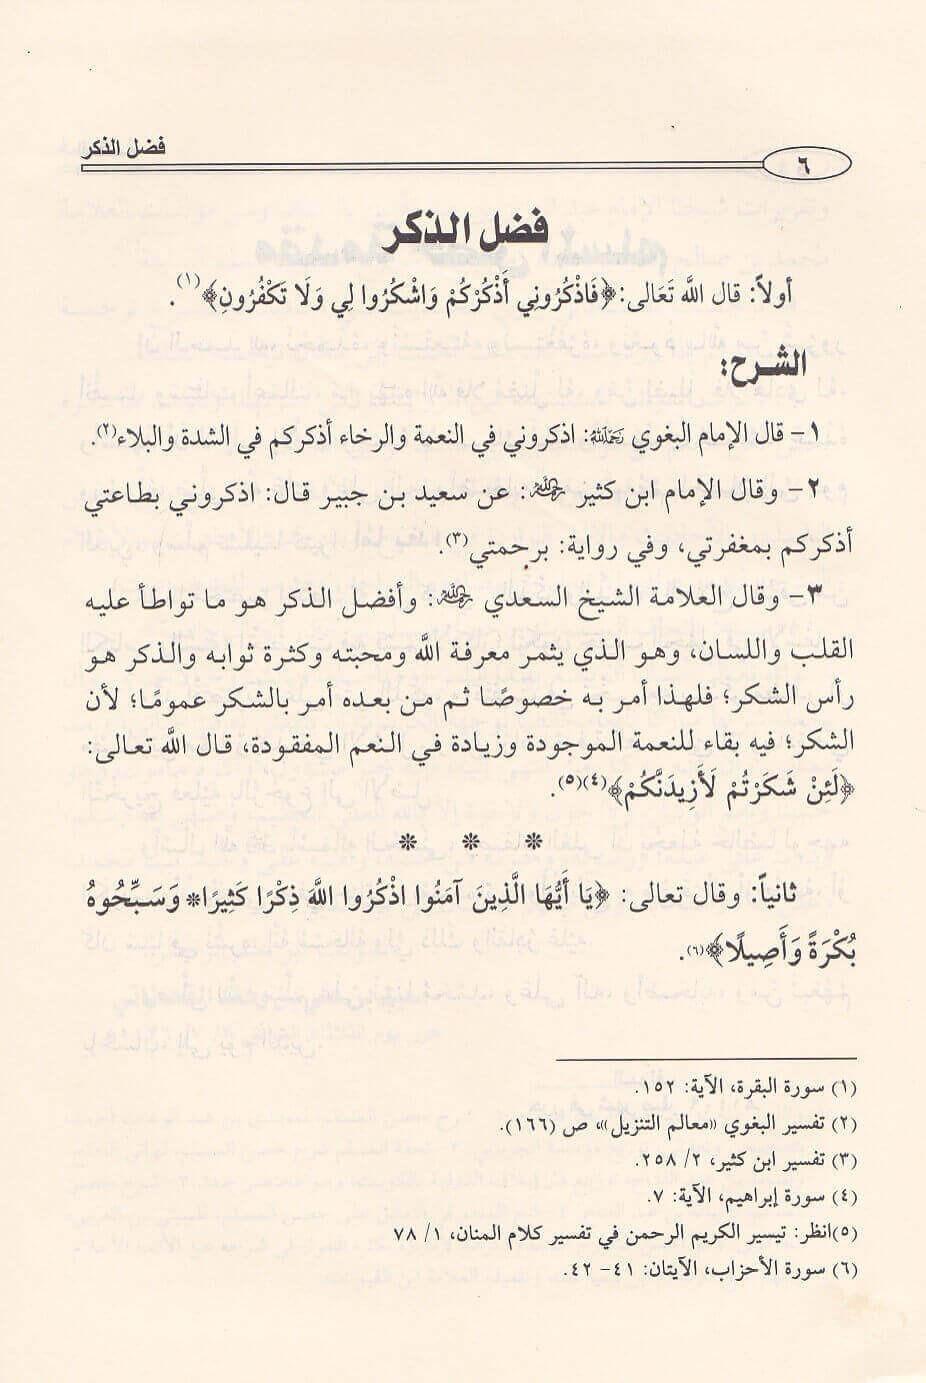 فضل الذكر
٦
فضل الذكر
أولاً: قال الله تَعَالى: ﴿فَاذْكُرُونِي أَذْكُرْكُمْ وَاشْكُرُوا لِي وَلَا تَكْفُرُونِ﴾(١).
الشرح:
١- قال الإمام البغوي رَحِمَهُ اللهُ: اذكروني في النعمة والرخاء أذكركم في الشدة والبلاء(٢).
٢- وقال الإمام ابن كثير رَحِمَهُ اللهُ: عن سعيد بن جبير قال: اذكروني بطاعتي
أذكركم بمغفرتي، وفي رواية: برحمتي(٣).
٣- وقال العلامة الشيخ السعدي رَحِمَهُ اللهُ: وأفضل الذكر هو ما تواطأ عليه
القلب واللسان، وهو الذي يثمر معرفة الله ومحبته وكثرة ثوابه والذكر هو
رأس الشكر؛ فلهذا أمر به خصوصًا ثم من بعده أمر بالشكر عمومًا؛ لأن
الشكر؛ فيه بقاء للنعمة الموجودة وزيادة في النعم المفقودة، قال الله تعالى:
﴿لَئِنْ شَكَرْتُمْ لَأَزِيدَنَّكُمْ﴾(٤)(٥).
* * *
ثانياً: وقال تعالى: ﴿يَا أَيُّهَا الَّذِينَ آمَنُوا اذْكُرُوا اللهَ ذِكْرًا كَثِيرًا * وَسَبِّحُوهُ
بُكْرَةً وَأَصِيلًا﴾(٦).
(١) سورة البقرة، الآية: ١٥٢.
(٢) تفسير البغوي «معالم التنزيل»، ص (١٦٦).
(٣) تفسير ابن كثير، ٢/ ٢٥٨.
(٤) سورة إبراهيم، الآية: ٧.
(٥)انظر: تيسير الكريم الرحمن في تفسير كلام المنان، ١/ ٧٨
(٦) سورة الأحزاب، الآيتان: ٤١- ٤٢.